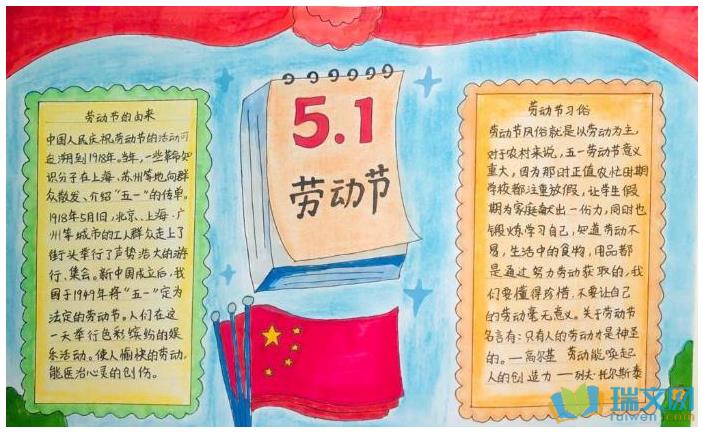 劳动节的由来
中国人民庆祝劳动节的活动可
追溯到1918年。当年,一些革命知
识分子在上海、苏州等地向群
众散发、介绍“五一”的传单。
1918年5月1日,北京、上海、广
州等城市的工人群众走上了
街头举行了声势浩大的游
行、集会。新中国成立后,我
国于1949年将“五一”定为
法定的劳动节。人们在这
一天举行色彩缤纷的娱
乐活动。使人愉快的劳动,
能医治心灵的创伤。
5.1
劳动节
劳动节习俗
劳动节风俗就是以劳动为主,
对于农村来说,五一劳动节意义
重大,因为那时正值农忙时期
学校都注重放假,让学生假
期为家庭献出一份力,同时也
锻炼学习自己,知道劳动不
易,生活中的食物,用品都
是通过努力劳动获取的,我
们要懂得珍惜,不要让自己
的劳动毫无意义。关于劳动节
名言有:只有人的劳动才是神圣
的。—高尔基 劳动能唤起
人的创造力—列夫·托尔斯泰
瑞文网
ruiwen.com